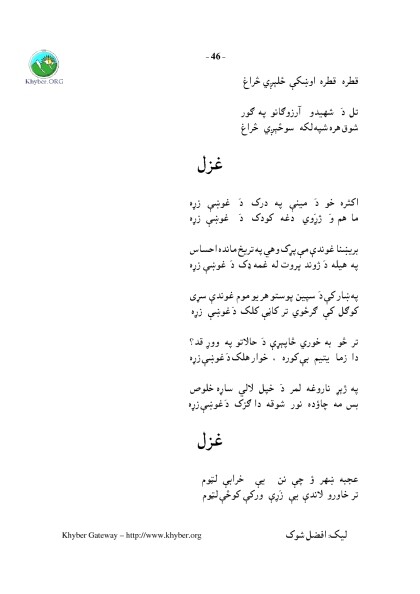 - 46 -
Khyber.ORG
قطره قطره اوښکې څلېږي څراغ
تل دَ شهيدو آرزوګانو په ګور
شوق هره شپه لکه سوځېږي څراغ
غزل
اکثره خو دَ مينې په درک دَ غوښې زړه
ما هم وَ ژړوي دغه کودک دَ غوښې زړه
برېښنا غوندې مې پړک وهي په تريخ مانده احساس
په هيله دَ ژوند پروت له غمه ډک دَ غوښې زړه
په ښار کې دَ سپين پوستو هر يو موم غوندې سړی
کوګل کې ګرځوي تر کاڼي کلک دَ غوښې زړه
تر څو به خورې څاپېړې دَ حالاتو په وړو قد؟
دا زما يتيم بې کوره ، خوار هلک دَ غوښې زړه
په ژېړ ناروغه لمر دَ خپل لالي ساړه خلوص
بس مه چاؤده نور شوقه دا ګزک دَ غوښې زړه
غزل
عجبه ښهر ؤ چې نن يې خرابې لټوم
تر خاورو لاندې يې زړې ورکې کوڅې لټوم
Khyber Gateway – http://www.khyber.org
ليک: افضل شوک